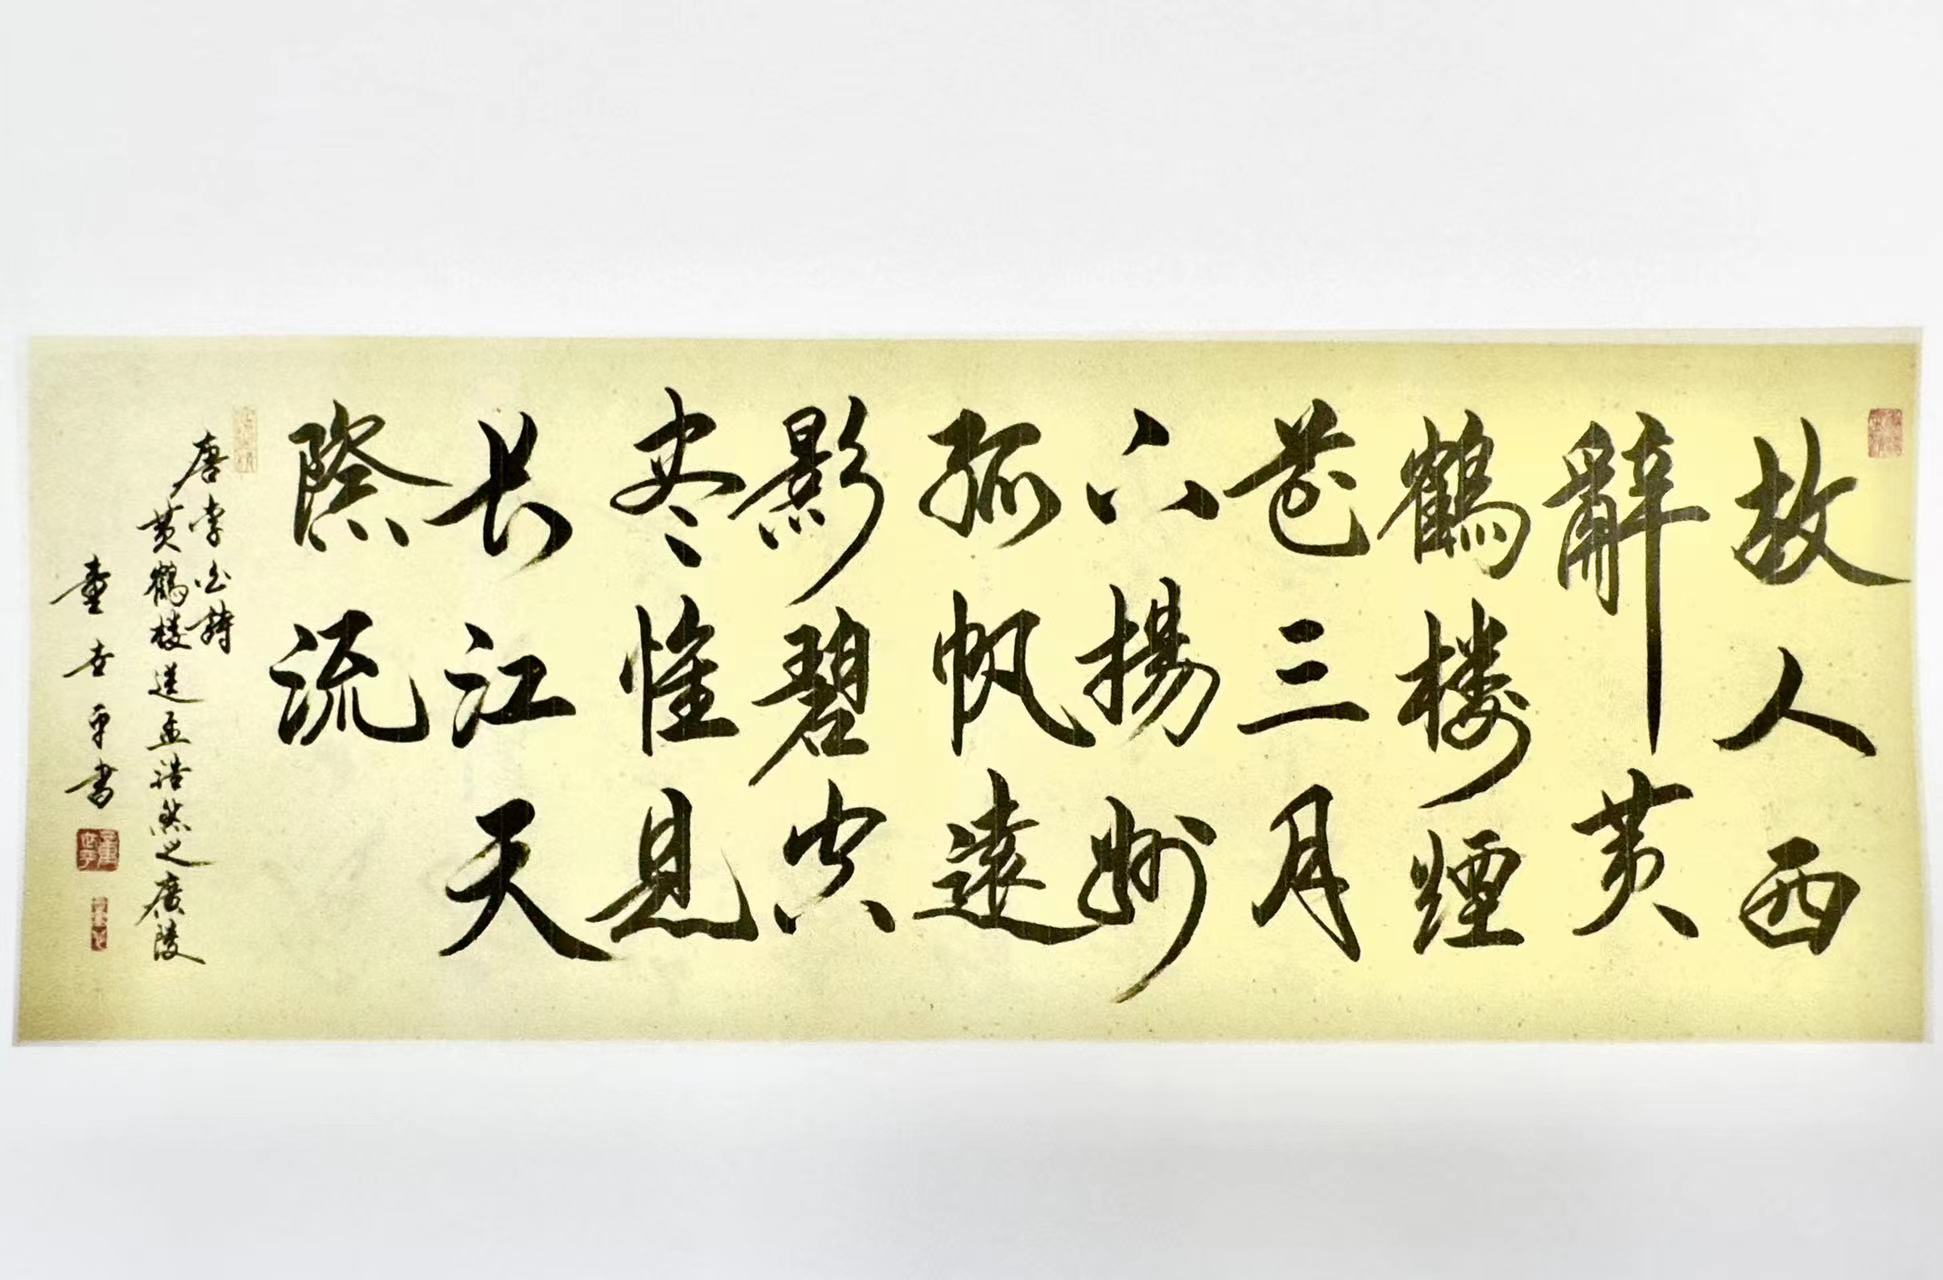 故人西
辭黄
鶴楼煙
花三月
下揚州
孤帆遠
影碧空
尽惟見
長江天
際流
唐李白詩
黄鶴楼送孟浩然之廣陵
童世平書